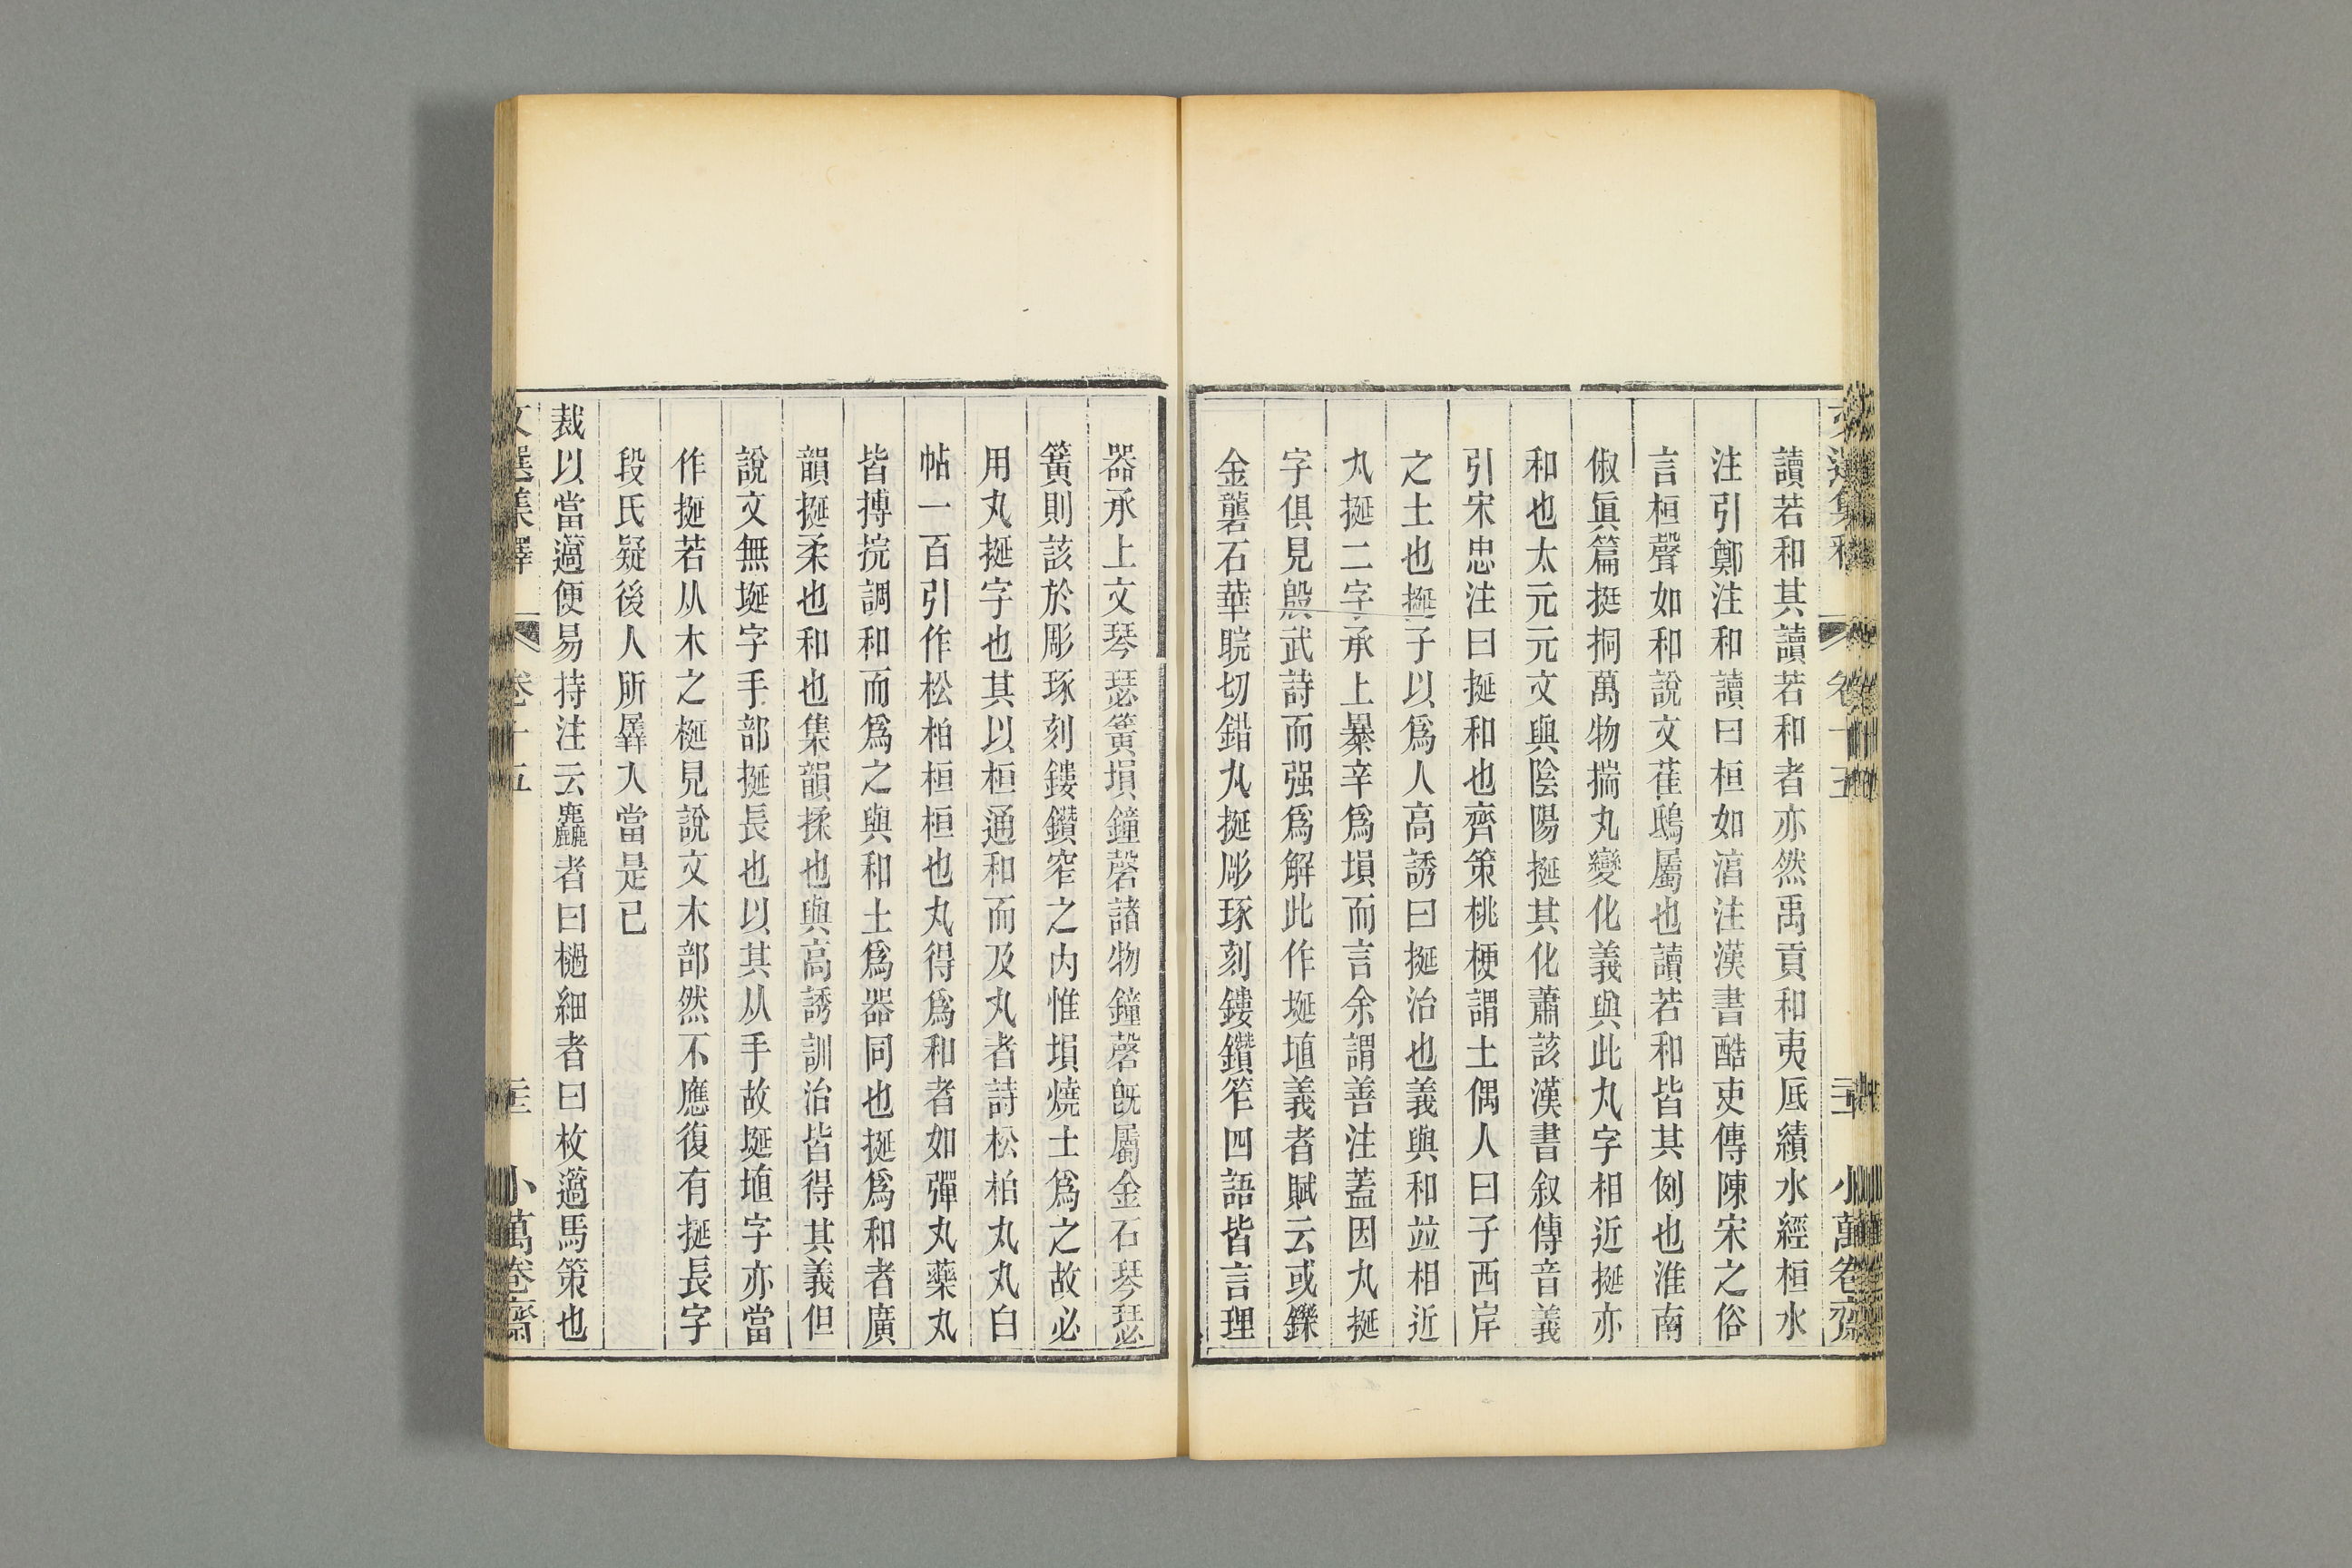 讀若和其讀若和者亦然禹貢和夷厎績水經桓水
注引鄭注和讀曰桓如淳注漢書酷吏傳陳宋之俗
言桓聲如和說文萑鴟屬也讀若和皆其例也淮南
俶眞篇挺挏萬物揣丸變化義與此丸字相近挻亦
和也太元元文與陰陽挻其化蕭該漢書叙傳音義
引宋忠注曰挻和也齊策桃梗謂土偶人曰子西岸
之土也挻子以爲人高誘曰挻治也義與和竝相近
丸挻二字承上暴辛爲塤而言余謂善注蓋因丸挻
字俱見殷武詩而强爲解此作埏埴義者賦云或鑠
金礲石華睆切錯丸挻彫琢刻鏤鑽笮四語皆言理
器承上文琴瑟簧塤鐘磬諸物鐘磬旣屬金石琴瑟
簧則該於彫琢刻鏤鑽窄之内惟塤燒土爲之故必
用丸挻字也其以桓通和而及丸者詩松柏丸丸白
帖一百引作松柏桓桓也丸得爲和者如彈丸藥丸
皆摶捖調和而爲之與和土爲器同也挻爲和者廣
韻挻柔也和也集韻揉也與高誘訓治皆得其義但
說文無埏字手部挻長也以其从手故埏埴字亦當
作挻若从木之梴見說文木部然不應復有挻長字
段氏疑後人所羼入當是已
裁以當簻便易持注云麤者曰檛細者曰枚簻馬策也
文選集釋 卷十五 小萬卷齋